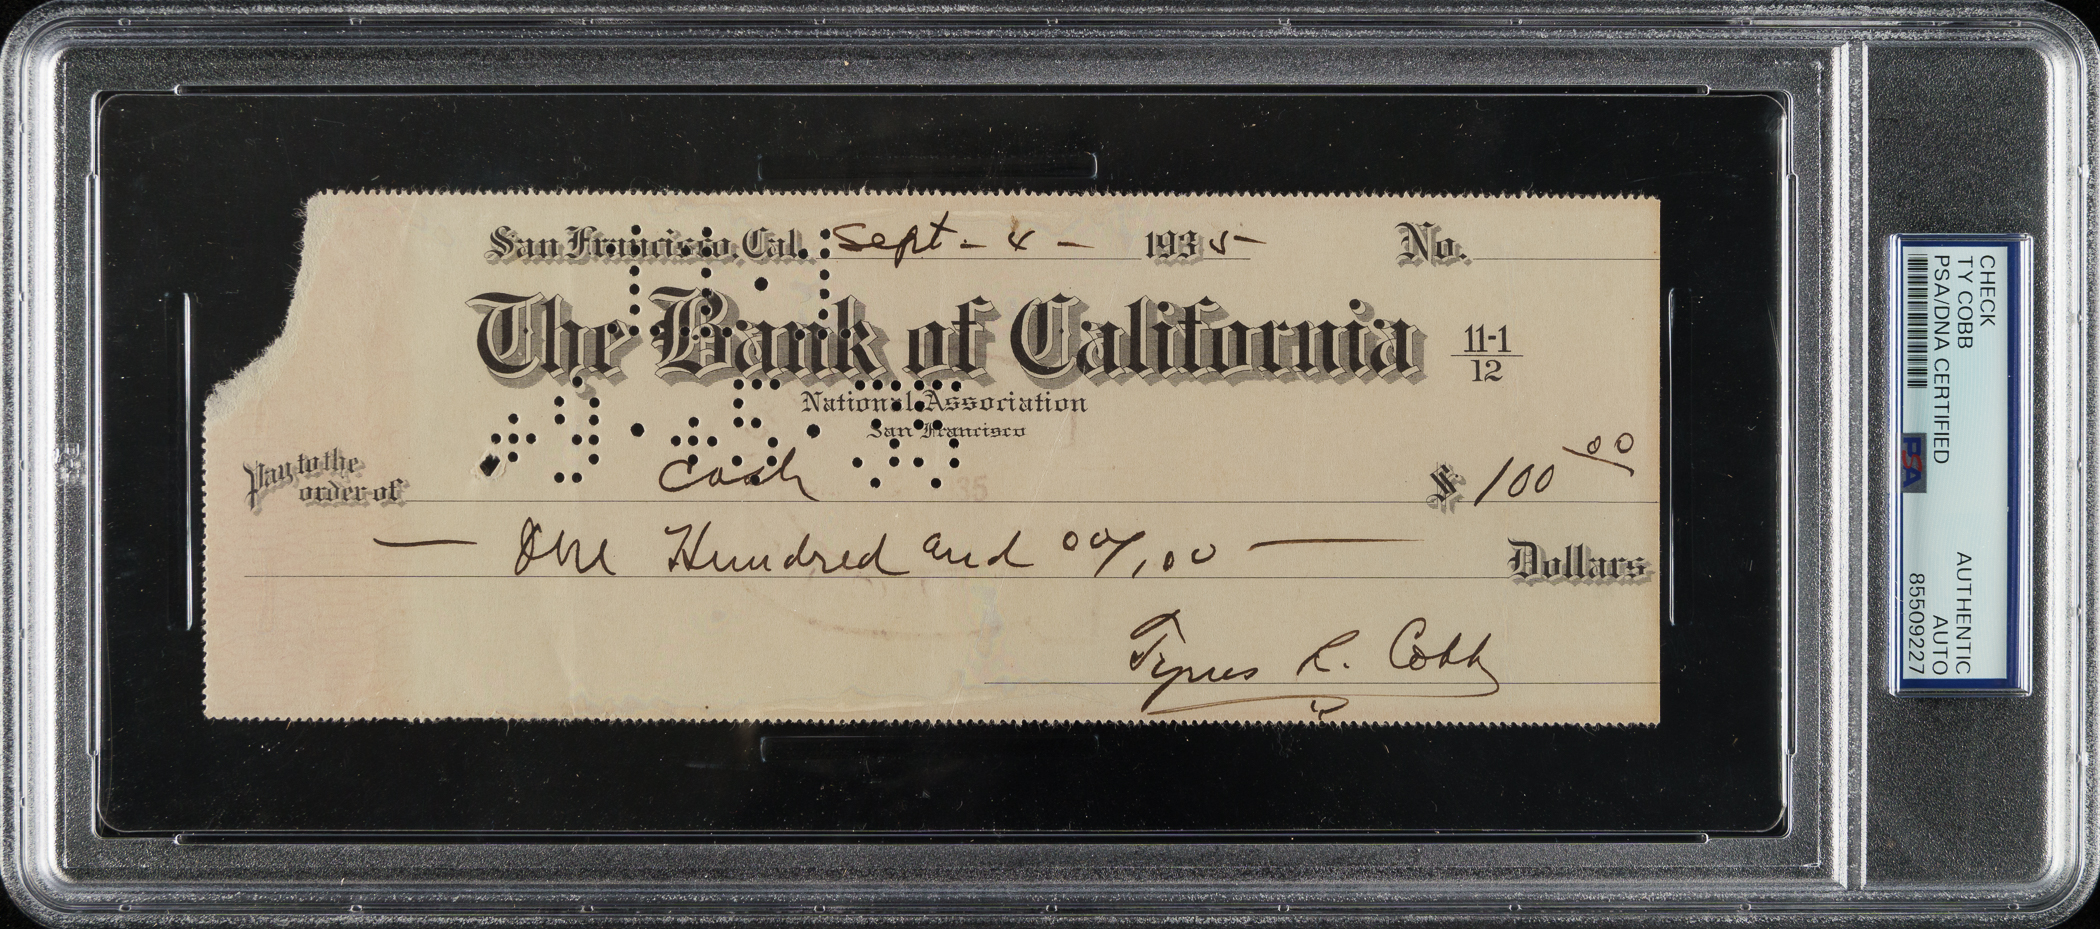 San Francisco, Cal. Sept - 4 - 1935 No.
The Bank of California 11-1/12
National Association
San Francisco
Pay to the order of Cash $ 100 00
One Hundred and 00/100 Dollars
Tyrus R. Cobb
CHECK
TY COBB
PSA/DNA CERTIFIED
PSA
AUTHENTIC
AUTO
85509227